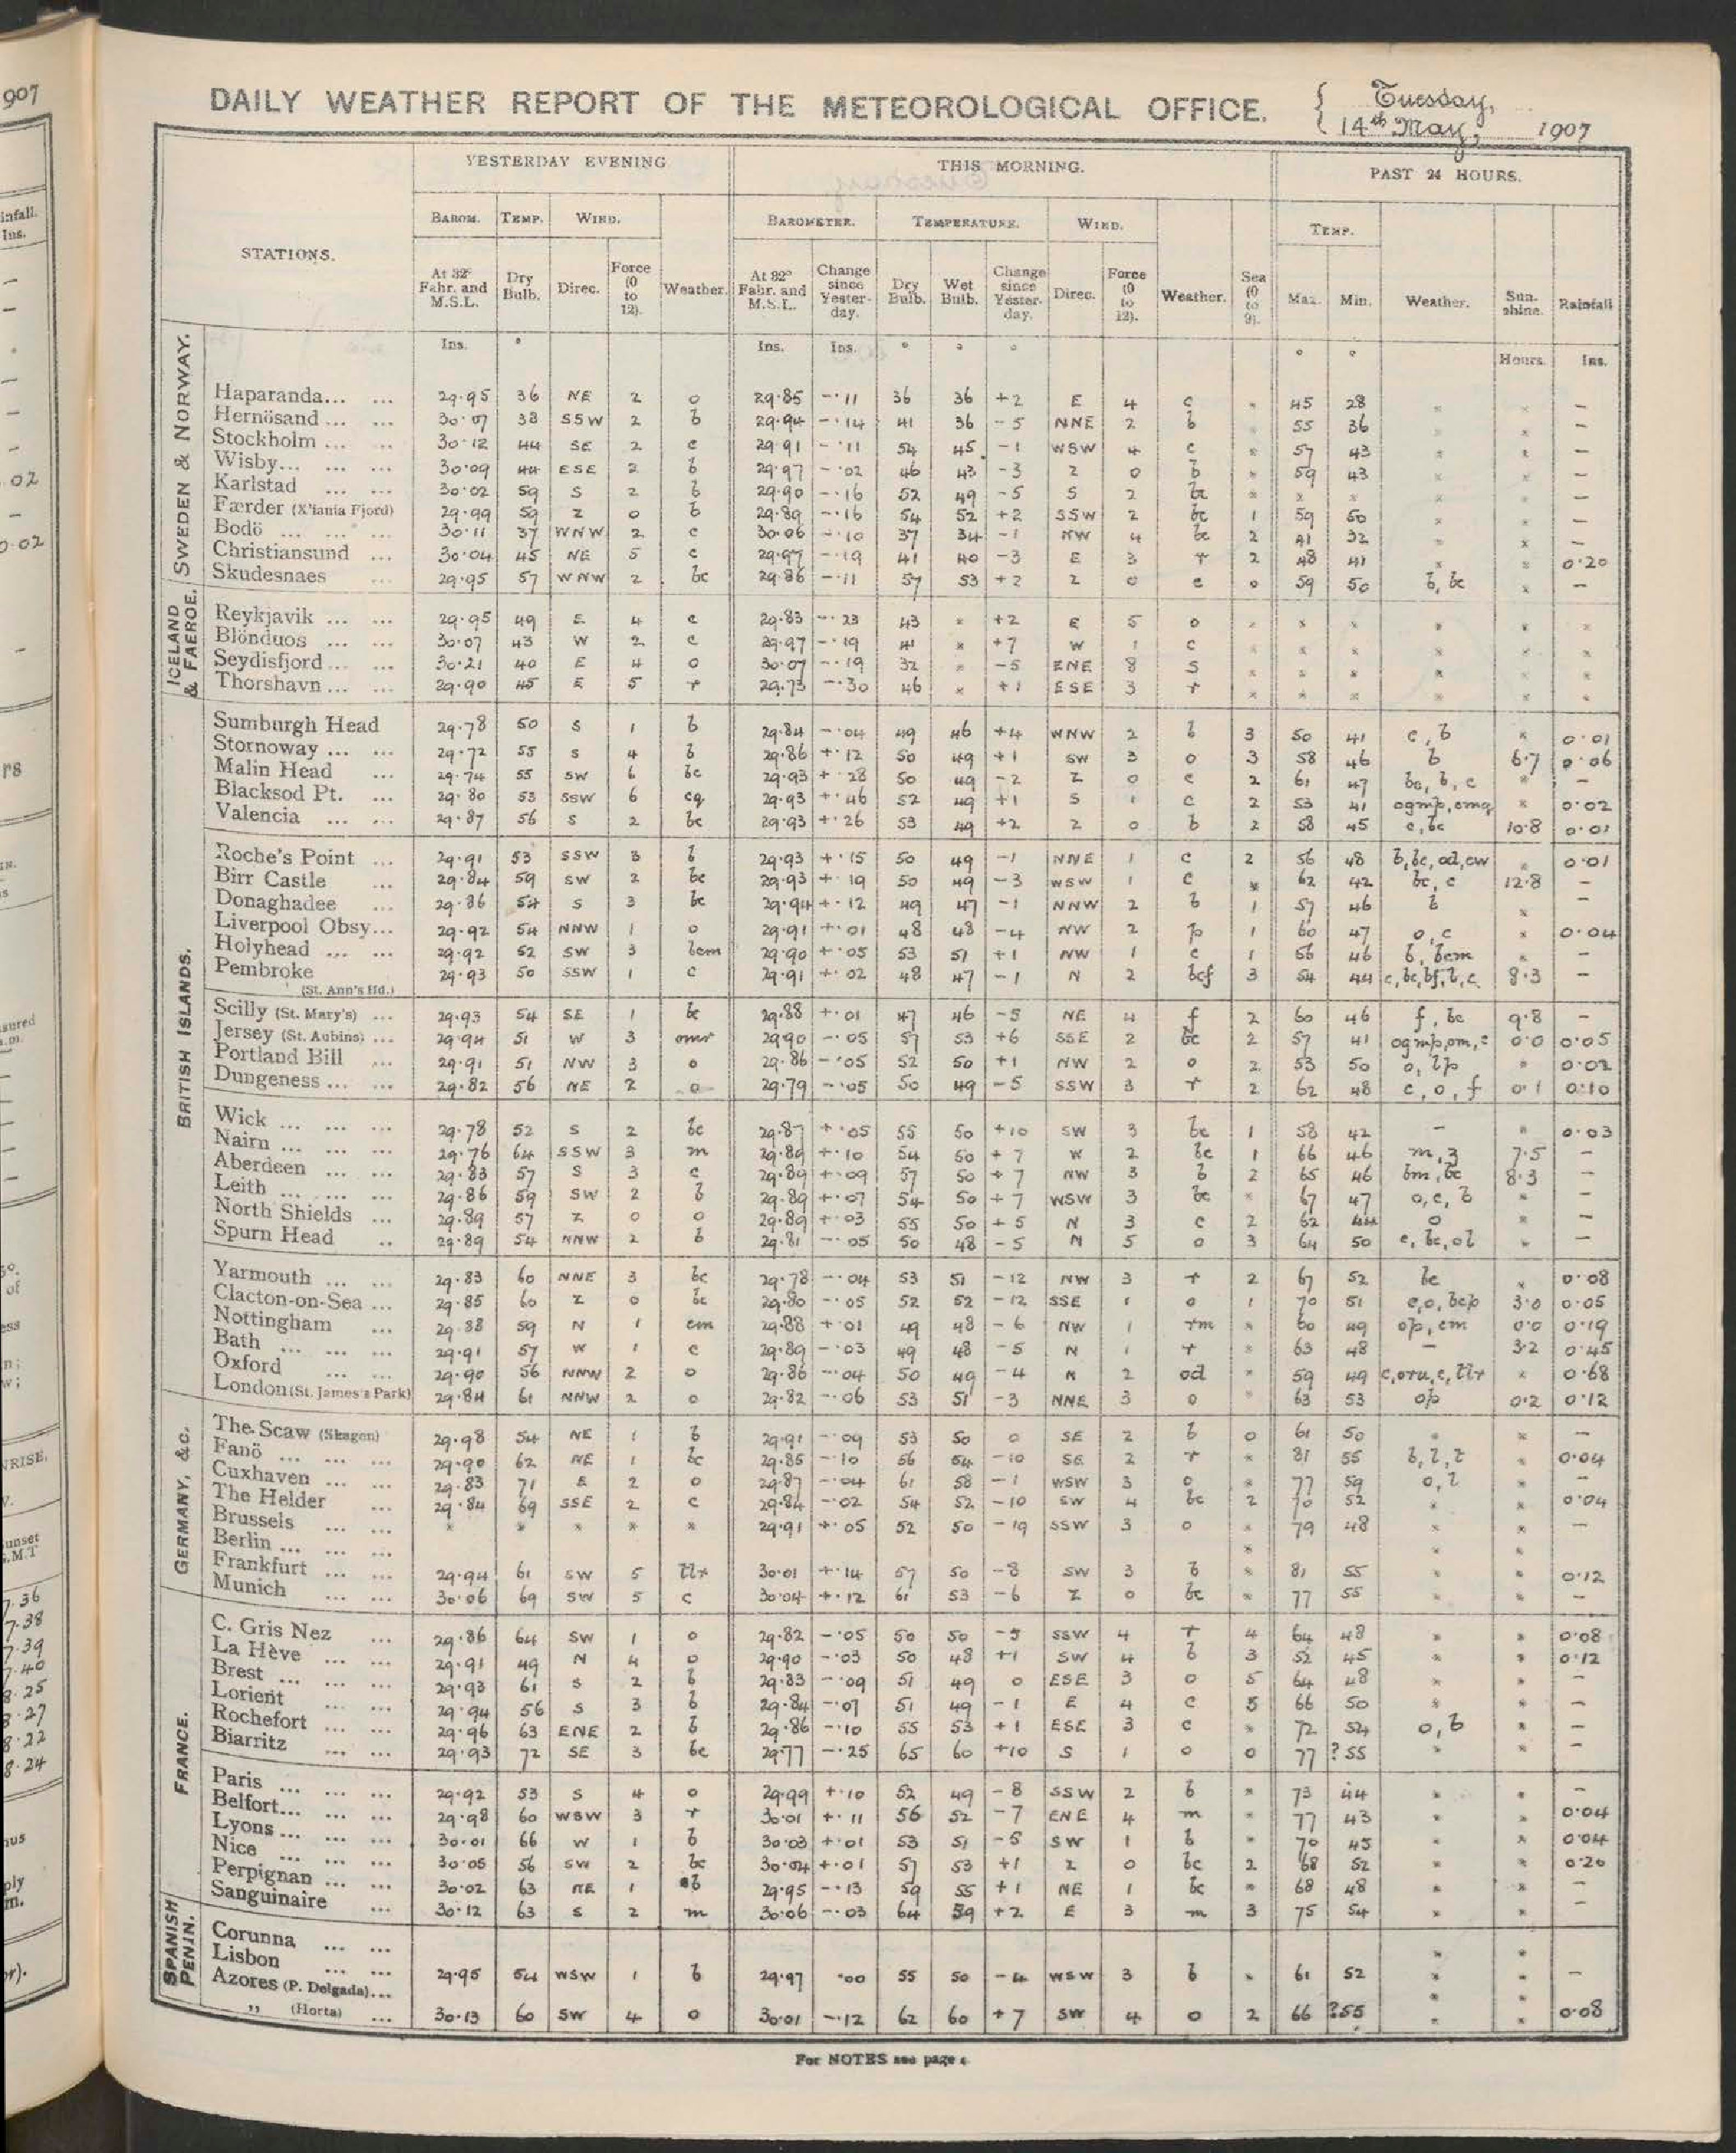 907
DAILY WEATHER REPORT OF THE METEOROLOGICAL OFFICE. { Tuesday, 14th May, 1907
YESTERDAY EVENING THIS MORNING. PAST 24 HOURS.
BAROM. TEMP. WIND. BAROMETER. TEMPERATURE. WIND. TEMP.
STATIONS. At 32° Fahr. and M.S.L. Dry Bulb. Direc. Force (0 to 12). Weather. At 32° Fahr. and M.S.L. Change since Yester-day. Dry Bulb. Wet Bulb. Change since Yester-day. Direc. Force (0 to 12). Weather. Sea (0 to 9). Max. Min. Weather. Sun-shine. Rainfall
Ins. ° Ins. Ins. ° ° ° ° ° Hours. Ins.
SWEDEN & NORWAY.
Haparanda... ... 29.95 36 NE 2 o 29.85 -.11 36 36 +2 E 4 c * 45 28 * * -
Hernösand ... ... 30.07 38 SSW 2 b 29.94 -.14 41 36 -5 NNE 2 b * 55 36 * * -
Stockholm ... ... 30.12 44 SE 2 c 29.91 -.11 54 45 -1 WSW 4 c * 57 43 * * -
Wisby... ... ... 30.09 44 ESE 2 b 29.97 -.02 46 43 -3 Z 0 b * 59 43 * * -
Karlstad ... ... 30.02 59 S 2 b 29.90 -.16 52 49 -5 S 2 bc * * * * * -
Færder (X'iania Fjord) 29.99 59 Z 0 b 29.89 -.16 54 52 +2 SSW 2 bc 1 59 50 * * -
Bodö ... ... ... 30.11 37 WNW 2 c 30.06 -.10 37 34 -1 NW 4 bc 2 41 32 * * -
Christiansund ... 30.04 45 NE 5 c 29.97 -.19 41 40 -3 E 3 r 2 48 41 * * 0.20
Skudesnaes ... 29.95 57 WNW 2 bc 29.86 -.11 57 53 +2 Z 0 c 0 59 50 b, bc * -
ICELAND & FAEROE.
Reykjavik ... ... 29.95 49 E 4 c 29.83 -.23 43 * +2 E 5 o * * * * * *
Blönduos ... ... 30.07 43 W 2 c 29.97 -.19 41 * +7 W 1 c * * * * * *
Seydisfjord ... ... 30.21 40 E 4 o 30.07 -.19 32 * -5 ENE 8 s * * * * * *
Thorshavn ... ... 29.90 45 E 5 r 29.73 -.30 46 * +1 ESE 3 r * * * * * *
BRITISH ISLANDS.
Sumburgh Head 29.78 50 S 1 b 29.84 -.04 49 46 +4 WNW 2 b 3 50 41 c, b * 0.01
Stornoway ... ... 29.72 55 S 4 b 29.86 +.12 50 49 +1 SW 3 o 3 58 46 b 6.7 0.06
Malin Head ... 29.74 55 SW 6 bc 29.93 +.28 50 49 -2 Z 0 c 2 61 47 bc, b, c * -
Blacksod Pt. ... 29.80 53 SSW 6 cq 29.93 +.46 52 49 +1 S 1 c 2 53 41 ogmp, omq * 0.02
Valencia ... ... 29.87 56 S 2 bc 29.93 +.26 53 49 +2 Z 0 b 2 58 45 c, bc 10.8 0.01
Roche's Point ... 29.91 53 SSW 3 b 29.93 +.15 50 49 -1 NNE 1 c 2 56 48 b, bc, od, cw * 0.01
Birr Castle ... 29.84 59 SW 2 bc 29.93 +.19 50 49 -3 WSW 1 c * 62 42 bc, c 12.8 -
Donaghadee ... 29.86 54 S 3 bc 29.94 +.12 49 47 -1 NNW 2 b 1 57 46 b * -
Liverpool Obsy... 29.92 54 NNW 1 o 29.91 +.01 48 48 -4 NW 2 p 1 60 47 o, c * 0.04
Holyhead ... ... 29.92 52 SW 3 bcm 29.90 +.05 53 51 +1 NW 1 c 1 56 46 b, bcm * -
Pembroke (St. Ann's Hd.) 29.93 50 SSW 1 c 29.91 +.02 48 47 -1 N 2 bcf 3 54 44 c, bc, bf, b, c. 8.3 -
Scilly (St. Mary's) ... 29.93 54 SE 1 bc 29.88 +.01 47 46 -5 NE 4 f 2 60 46 f, bc 9.8 -
Jersey (St. Aubins) ... 29.94 51 W 3 omr 29.90 -.05 57 53 +6 SSE 2 bc 2 57 41 ogmp, om, c 0.0 0.05
Portland Bill ... 29.91 51 NW 3 o 29.86 -.05 52 50 +1 NW 2 o 2 53 50 o, lp * 0.02
Dungeness ... ... 29.82 56 NE 2 o 29.79 -.05 50 49 -5 SSW 3 r 2 62 48 c, o, f 0.1 0.10
Wick ... ... ... 29.78 52 S 2 bc 29.87 +.05 55 50 +10 SW 3 bc 1 58 42 - * 0.03
Nairn ... ... ... 29.76 64 SSW 3 m 29.89 +.10 54 50 +7 W 2 bc 1 66 46 m, z 7.5 -
Aberdeen ... ... 29.83 57 S 3 c 29.89 +.09 57 50 +7 NW 3 b 2 65 46 bm, bc 8.3 -
Leith ... ... ... 29.86 59 SW 2 b 29.89 +.07 54 50 +7 WSW 3 bc * 67 47 o, c, b * -
North Shields ... 29.89 57 Z 0 o 29.89 +.03 55 50 +5 N 3 c 2 62 44 o * -
Spurn Head .. 29.89 54 NNW 2 b 29.81 -.05 50 48 -5 N 5 o 3 64 50 c, bc, ol * -
Yarmouth ... ... 29.83 60 NNE 3 bc 29.78 -.04 53 51 -12 NW 3 r 2 67 52 bc * 0.08
Clacton-on-Sea ... 29.85 60 Z 0 bc 29.80 -.05 52 52 -12 SSE 1 o 1 70 51 c, o, bcp 3.0 0.05
Nottingham ... 29.88 59 N 1 cm 29.88 +.01 49 48 -6 NW 1 rm * 60 49 op, cm 0.0 0.19
Bath ... ... ... 29.91 57 W 1 c 29.89 -.03 49 48 -5 N 1 r * 63 48 - 3.2 0.45
Oxford ... ... 29.90 56 NNW 2 o 29.86 -.04 50 49 -4 N 2 od * 59 49 c, oru, c, tlr * 0.68
London (St. James's Park) 29.84 61 NNW 2 o 29.82 -.06 53 51 -3 NNE 3 o * 63 53 op 0.2 0.12
GERMANY, &c.
The Scaw (Skagen) 29.98 54 NE 1 b 29.91 -.09 53 50 0 SE 2 b 0 61 50 * * -
Fanö ... ... ... 29.90 62 NE 1 bc 29.85 -.10 56 54 -10 SE 2 r * 81 55 b, l, t * 0.04
Cuxhaven ... ... 29.83 71 E 2 o 29.87 -.04 61 58 -1 WSW 3 o * 77 59 o, l * -
The Helder ... 29.84 69 SSE 2 c 29.84 -.02 54 52 -10 SW 4 bc 2 70 52 * * 0.04
Brussels ... ... * * * * * 29.91 +.05 52 50 -19 SSW 3 o * 79 48 * * -
Berlin ... ... ... * * *
Frankfurt ... ... 29.94 61 SW 5 tlr 30.01 +.14 57 50 -8 SW 3 b * 81 55 * * 0.12
Munich ... ... 30.06 69 SW 5 c 30.04 +.12 61 53 -6 Z 0 bc * 77 55 * * -
FRANCE.
C. Gris Nez ... 29.86 64 SW 1 o 29.82 -.05 50 50 -5 SSW 4 r 4 64 48 * * 0.08
La Hève ... ... 29.91 49 N 4 o 29.90 -.03 50 48 +1 SW 4 b 3 52 45 * * 0.12
Brest ... ... ... 29.93 61 S 2 b 29.83 -.09 51 49 0 ESE 3 o 5 64 48 * * -
Lorient ... ... 29.94 56 S 3 b 29.84 -.07 51 49 -1 E 4 c 5 66 50 * * -
Rochefort ... ... 29.96 63 ENE 2 b 29.86 -.10 55 53 +1 ESE 3 c * 72 54 o, b * -
Biarritz ... ... 29.93 72 SE 3 bc 29.77 -.25 65 60 +10 S 1 o 0 77 ?55 * * -
Paris ... ... ... 29.92 53 S 4 o 29.99 +.10 52 49 -8 SSW 2 b * 73 44 * * -
Belfort... ... ... 29.98 60 WSW 3 r 30.01 +.11 56 52 -7 ENE 4 m * 77 43 * * 0.04
Lyons ... ... ... 30.01 66 W 1 b 30.03 +.01 53 51 -5 SW 1 b * 70 45 * * 0.04
Nice ... ... ... 30.05 56 SW 2 bc 30.04 +.01 57 53 +1 Z 0 bc 2 68 52 * * 0.20
Perpignan ... ... 30.02 63 NE 1 b 29.95 -.13 59 55 +1 NE 1 bc * 68 48 * * -
Sanguinaire ... 30.12 63 S 2 m 30.06 -.03 64 59 +2 E 3 m 3 75 54 * * -
SPANISH PENIN.
Corunna ... ... * *
Lisbon ... ... 29.95 54 WSW 1 b 29.97 .00 55 50 -4 WSW 3 b * 61 52 * * -
Azores (P. Delgada)... * *
" (Horta) ... 30.13 60 SW 4 o 30.01 -.12 62 60 +7 SW 4 o 2 66 ?55 * * 0.08
For NOTES see page 4